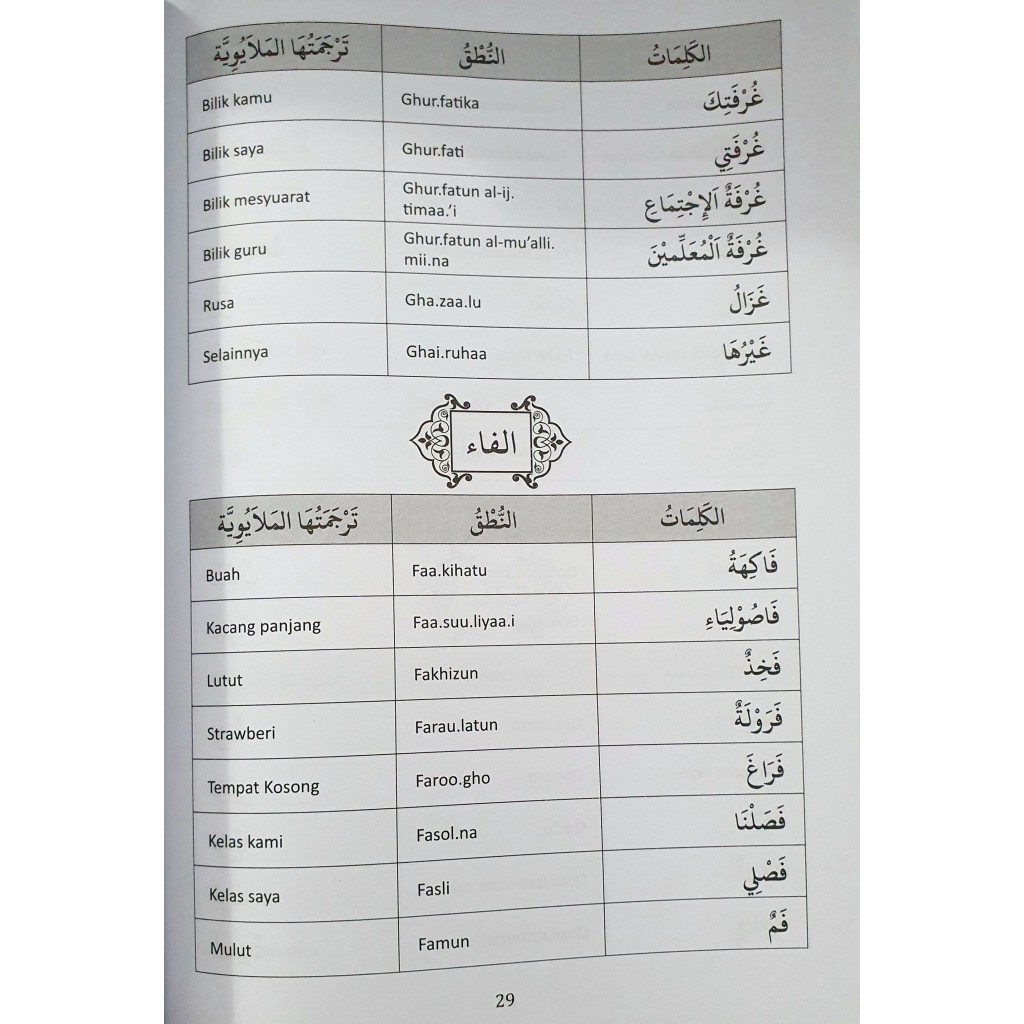 الكَلِمَاتُ النُّطْقُ تَرْجَمَتُهَا المَلاَيُوِيَّة
غُرْفَتِكَ Ghur.fatika Bilik kamu
غُرْفَتِي Ghur.fati Bilik saya
غُرْفَةٌ اَلإِجْتِمَاعِ Ghur.fatun al-ij. Bilik mesyuarat
timaa.’i
غُرْفَةٌ اَلْمُعَلِّمِيْنَ Ghur.fatun al-mu’alli. Bilik guru
mii.na
غَزَالُ Gha.zaa.lu Rusa
غَيْرُهَا Ghai.ruhaa Selainnya
الفاء
الكَلِمَاتُ النُّطْقُ تَرْجَمَتُهَا المَلاَيُوِيَّة
فَاكِهَةُ Faa.kihatu Buah
فَاصُوْلِيَاءِ Faa.suu.liyaa.i Kacang panjang
فَخِذٌ Fakhizun Lutut
فَرَوْلَةٌ Farau.latun Strawberi
فَرَاغَ Faroo.gho Tempat Kosong
فَصَلْنَا Fasol.na Kelas kami
فَصْلِي Fasli Kelas saya
فَمٌ Famun Mulut
29